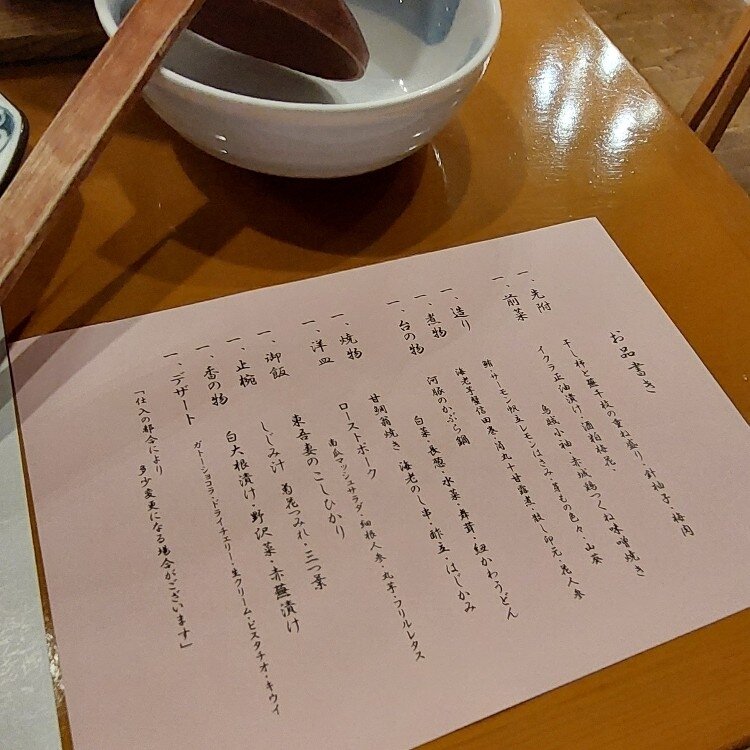 お品書き
一、先附
干し柿と蕪千枚の重ね盛り・針柚子・梅肉
一、前菜
イクラ正油漬け・酒粕梅花・
烏賊小袖・赤城鶏つくね味噌焼き
一、造り
鮪・サーモン帆立レモンはさみ・芽もの色々・山葵
一、煮物
海老芋蟹信田巻・筒丸十甘露煮・散し印元・花人参
一、台の物
河豚のかぶら鍋
白菜・長葱・水菜・舞茸・紐かわうどん
一、焼物
甘鯛翁焼き 海老のし串・酢立・はじかみ
一、洋皿
ローストポーク
南瓜マッシュサラダ・細根人参・丸芋・フリルレタス
一、御飯
東吾妻のこしひかり
一、止椀
しじみ汁 菊花つみれ・三つ葉
一、香の物
白大根漬け・野沢菜・赤蕪漬け
一、デザート
ガトーショコラ・ドライチェリー・生クリーム・ピスタチオ・キウイ
「仕入の都合により 多少変更になる場合がございます」